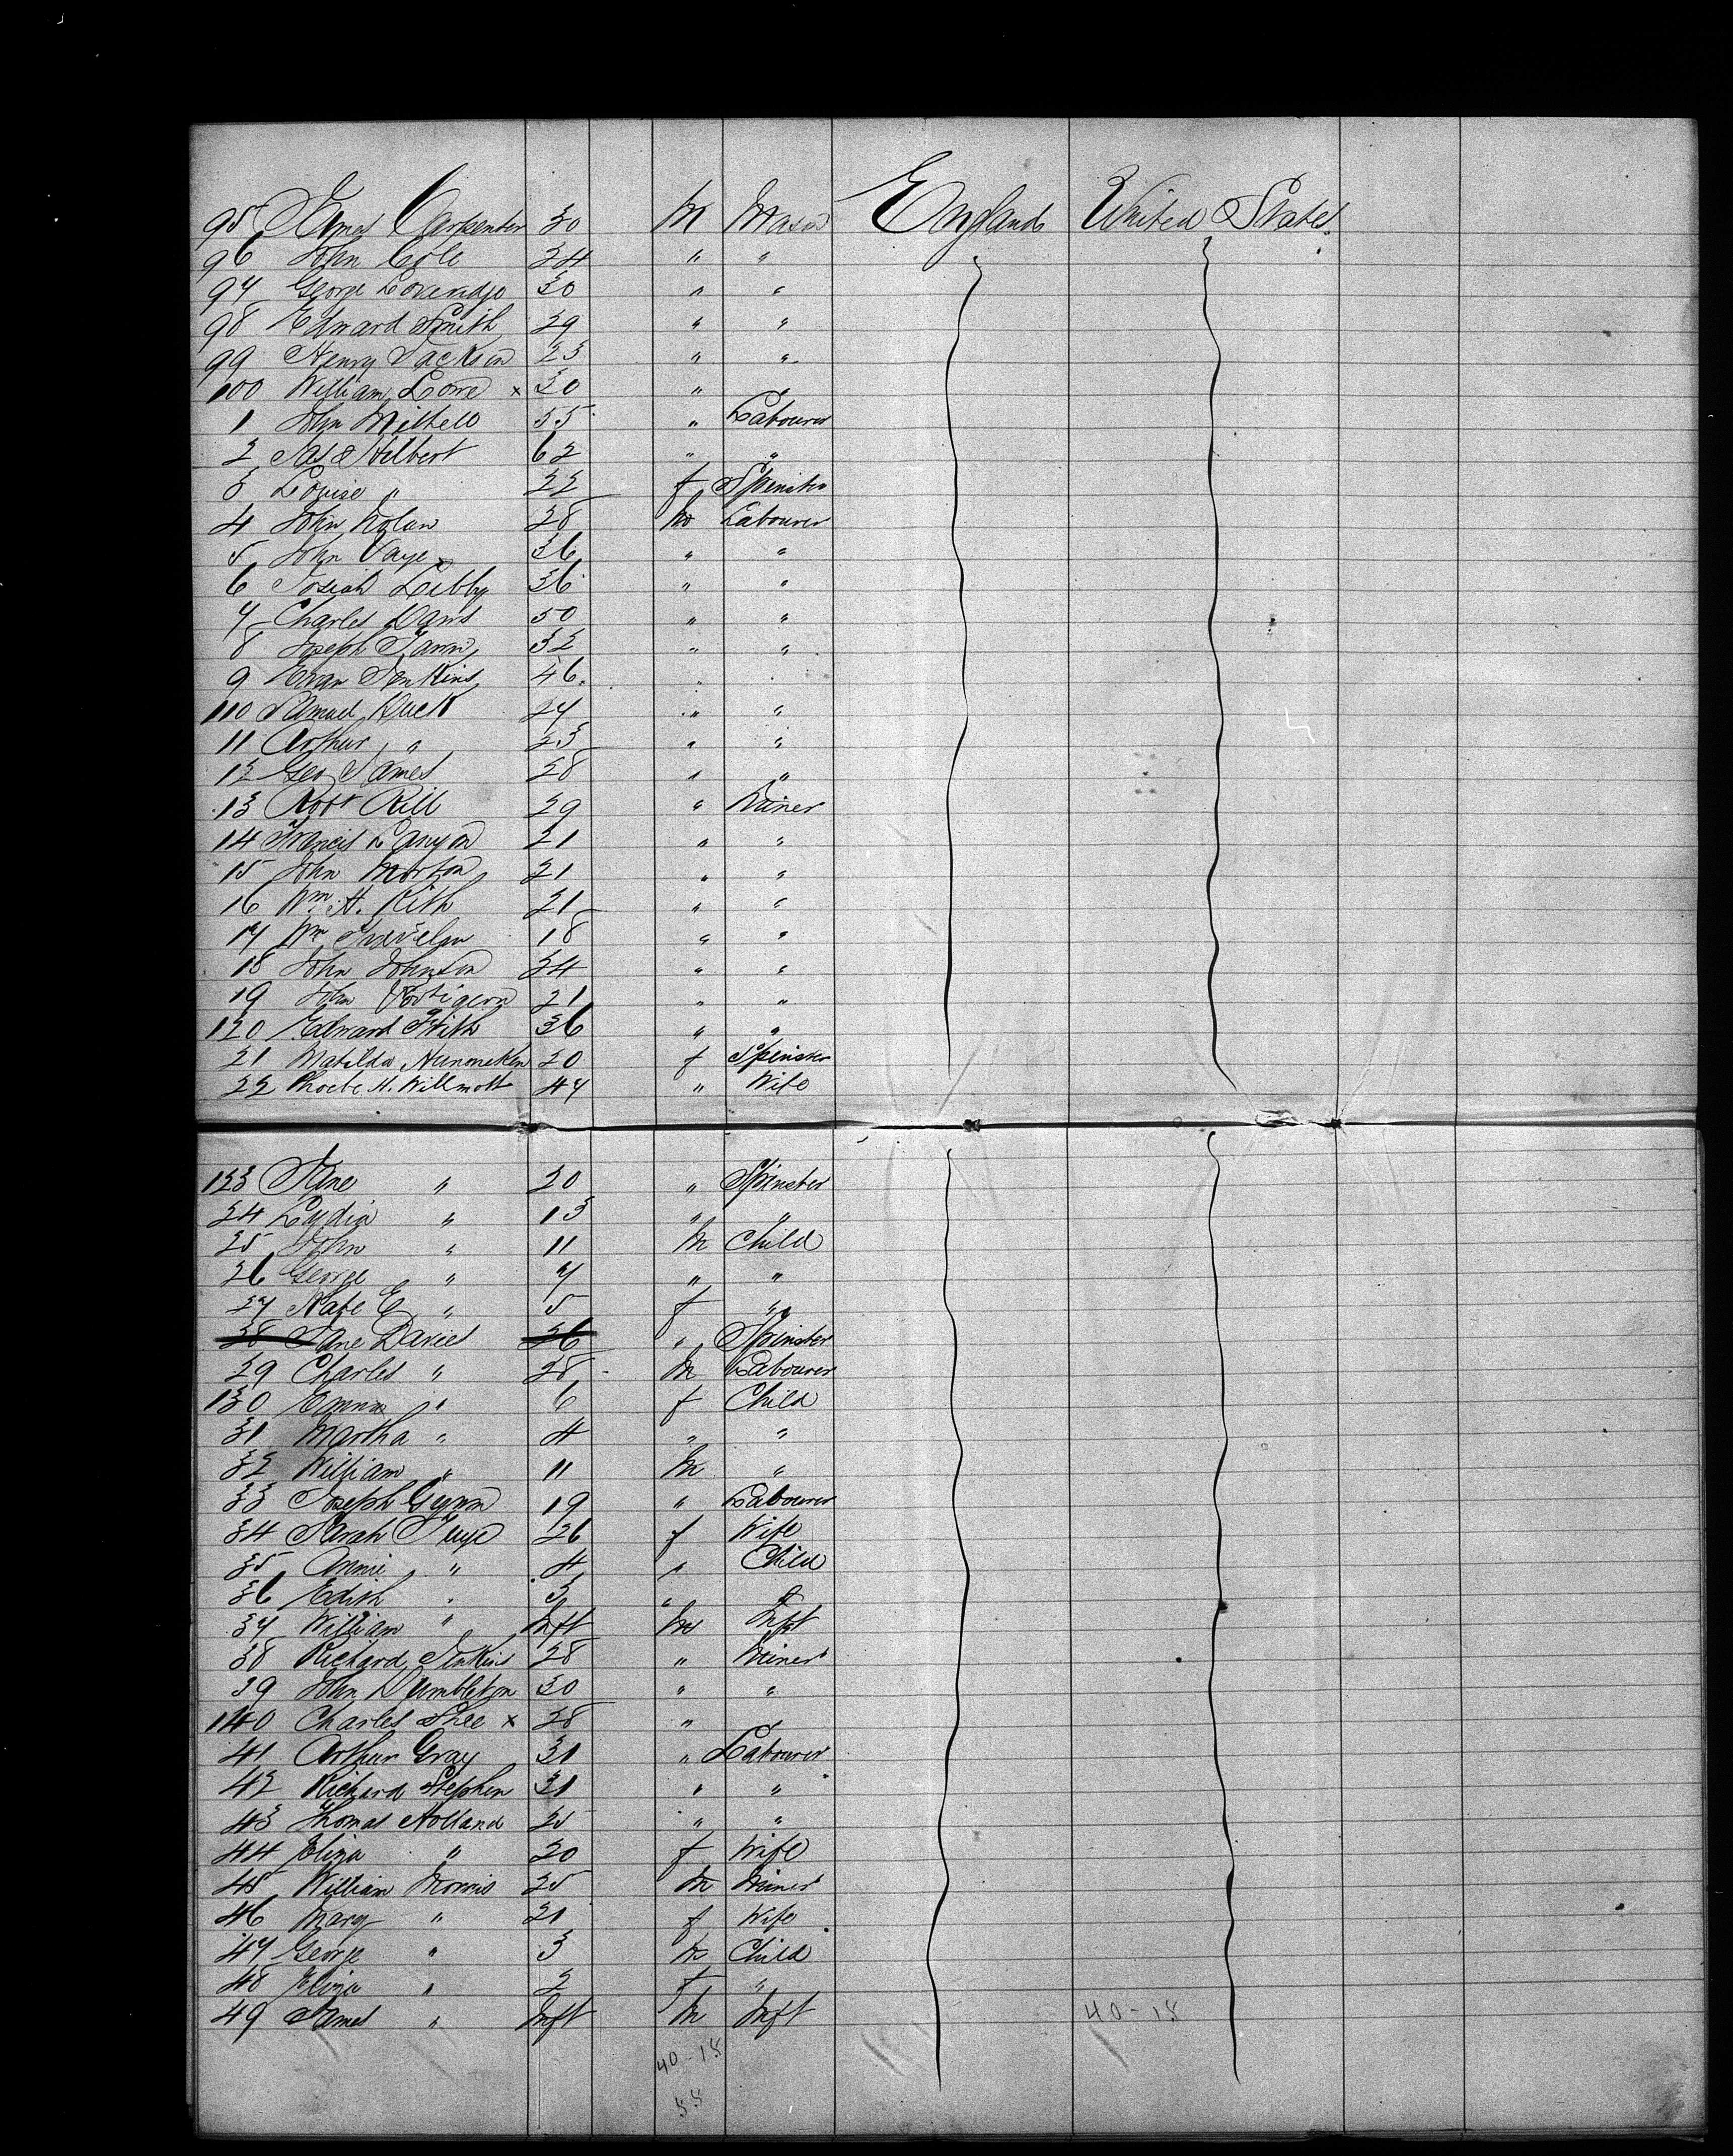 95 James Carpenter 30 M Mason England United States
96 John Cole 24 " "
97 George Loveridge 30 " "
98 Edward Smith 29 " "
99 Henry Jackson 23 " "
100 William Lowe x 30 " "
1 John 55 " Labourer
2 Jas Hilbert 62 " "
3 Louise " 22 f Spinster
4 John Nolan 28 M Labourer
5 John 36 " "
6 Josiah Libby 36 " "
7 Charles Davis 50 " "
8 Joseph 32 " "
9 Evan Jenkins 46 " "
110 Samuel 27 " "
11 Arthur " 23 " "
12 Geo James 28 " "
13 Robt Rill 29 " Miner
14 Francis Lanyon 21 " "
15 John Morton 21 " "
16 Wm H. Kith 21 " "
17 Wm 18 " "
18 John Johnson 24 " "
19 John 21 " "
120 Edward Frith 36 " "
21 Matilda 20 f Spinster
22 Phoebe H. Willmott 47 " Wife
123 Jane " 20 " Spinster
24 Lydia " 13 " "
25 John " 11 M Child
26 George " 7 " "
27 Kate E " 5 f "
28 Jane Davies 26 " Spinster
29 Charles " 28 M Labourer
130 Emma " 6 f Child
31 Martha " 4 " "
32 William " 11 M "
33 Joseph Glynn 19 " Labourer
34 Sarah 26 f Wife
35 Annie " 4 " Child
36 Edith " 3 " "
37 William " Inft M Inft
38 Richard Jenkins 28 " Miner
39 John Dumbleton 30 " "
140 Charles Shee x 28 " "
41 Arthur Gray 31 " Labourer
42 Richard Stephen 31 " "
43 Thomas Holland 25 " "
44 Eliza " 20 f Wife
45 William Morris 25 M Miner
46 Mary " 21 f Wife
47 George " 3 M Child
48 Eliza " 2 f "
49 James " Inft M Inft 40-15
40-15
55